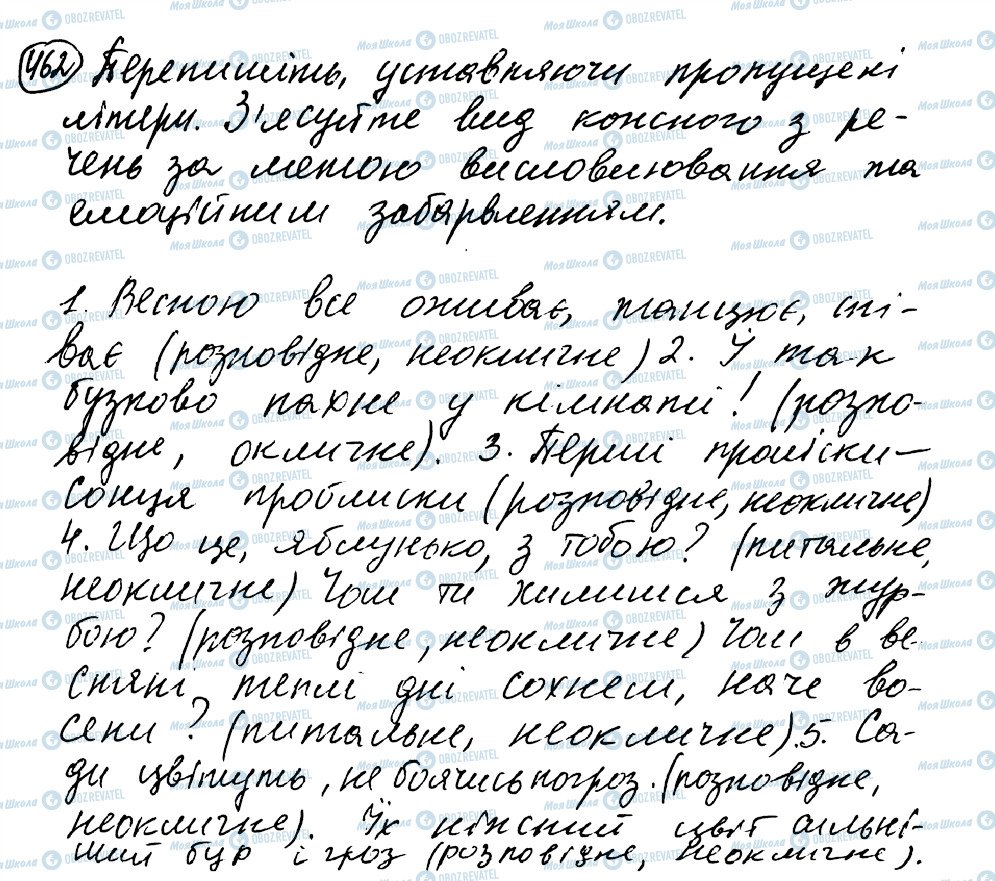 462 Перепишіть, уставляючи пропущені
літери. З'ясуйте вид кожного з ре-
чень за метою висловлювання та
емоційним забарвленням.
1. Весною все оживає, танцює, спі-
ває (розповідне, неокличне) 2. І так
бузково пахне у кімнаті! (розпо-
відне, окличне). 3. Перші проліски –
сонця проблиски (розповідне, неокличне)
4. Що це, яблунько, з тобою? (питальне,
неокличне) Чом ти хилишся з жур-
бою? (розповідне, неокличне) Чом в ве-
сняні теплі дні сохнем, наче во-
сени? (питальне, неокличне). 5. Са-
ди цвітуть, не боячись погроз. (розповідне,
неокличне). Їх ніжний цвіт сильні-
ший бур і гроз (розповідне, неокличне).